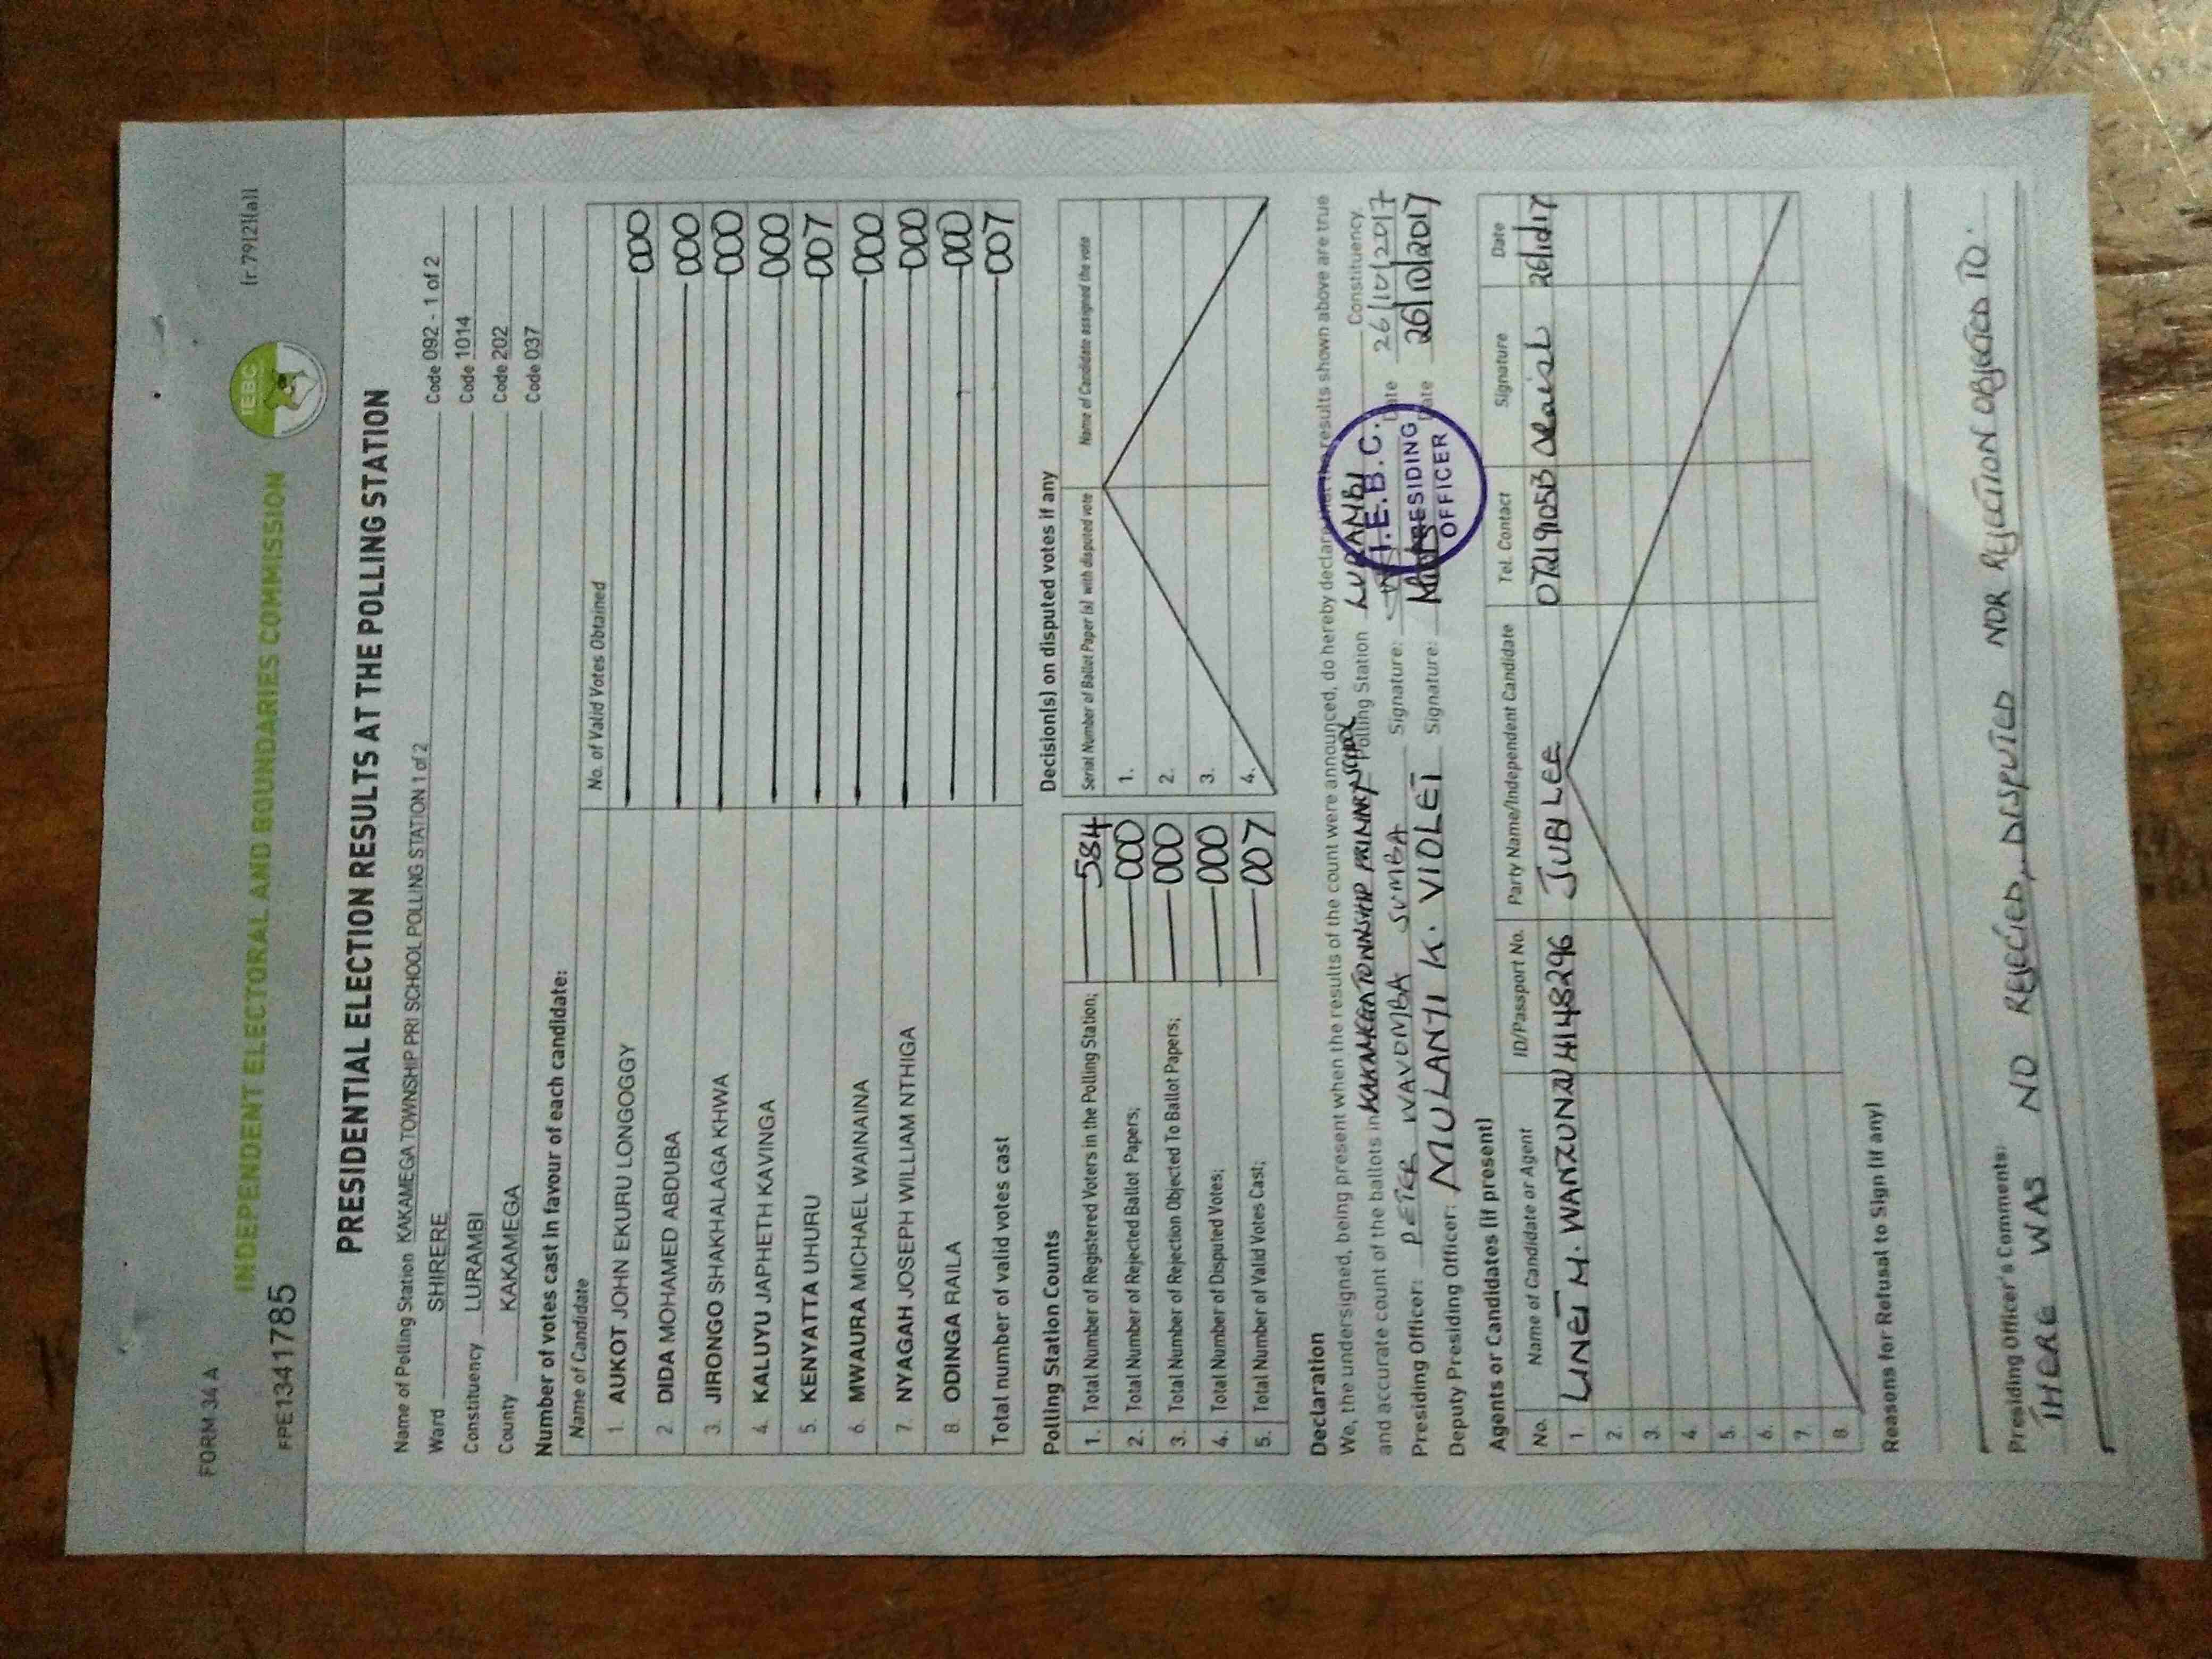 FORM 34 A
(r.79(2)(a))
IEBC
INDEPENDENT ELECTORAL AND BOUNDARIES COMMISSION
FPE1341785
PRESIDENTIAL ELECTION RESULTS AT THE POLLING STATION
Name of Polling Station KAKAMEGA TOWNSHIP PRI SCHOOL POLLING STATION 1 of 2 Code 092 - 1 of 2
Ward SHIRERE Code 1014
Constituency LURAMBI Code 202
County KAKAMEGA Code 037
Number of votes cast in favour of each candidate:
Name of Candidate No. of Valid Votes Obtained
1. AUKOT JOHN EKURU LONGOGGY 000
2. DIDA MOHAMED ABDUBA 000
3. JIRONGO SHAKHALAGA KHWA 000
4. KALUYU JAPHETH KAVINGA 000
5. KENYATTA UHURU 007
6. MWAURA MICHAEL WAINAINA 000
7. NYAGAH JOSEPH WILLIAM NTHIGA 000
8. ODINGA RAILA 000
Total number of valid votes cast 007
Polling Station Counts
1. Total Number of Registered Voters in the Polling Station; 584
2. Total Number of Rejected Ballot Papers; 000
3. Total Number of Rejection Objected To Ballot Papers; 000
4. Total Number of Disputed Votes; 000
5. Total Number of Valid Votes Cast; 007
Decision(s) on disputed votes if any
Serial Number of Ballot Paper (s) with disputed vote Name of Candidate assigned the vote
1.
2.
3.
4.
Declaration
We, the undersigned, being present when the results of the count were announced, do hereby declare that the results shown above are true
and accurate count of the ballots in KAKAMEGA TOWNSHIP PRIMARY SCHOOL Polling Station LURAMBI Constituency.
Presiding Officer: PETER WAVOMBA SUMBA Signature: Date 26/10/2017
Deputy Presiding Officer: MULANYI K. VIOLET Signature: Date 26/10/2017
I.E.B.C.
PRESIDING
OFFICER
Agents or Candidates (if present)
No. Name of Candidate or Agent ID/Passport No. Party Name/Independent Candidate Tel. Contact Signature Date
1. LINET M. WANZUNZI JUBILEE
2.
3.
4.
5.
6.
7.
8.
Reasons for Refusal to Sign (if any)
Presiding Officer's Comments:
THERE WAS NO REJECTED, DISPUTED NOR REJECTION OBJECTED TO.